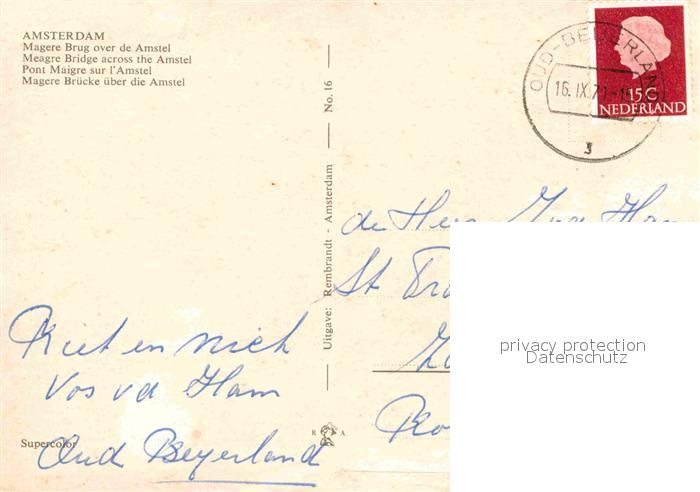 AMSTERDAM
Magere Brug over de Amstel
Meagre Bridge across the Amstel
Pont Maigre sur l'Amstel
Magere Brücke über die Amstel
Uitgave: Rembrandt - Amsterdam
No. 16
OUD-BEIJERLAND
16. IX. 71
3
15 C
NEDERLAND
de Heer
St
privacy protection
Datenschutz
Riet en Nick
Vos vd Ham
Oud Beyerland
Supercolor
R A